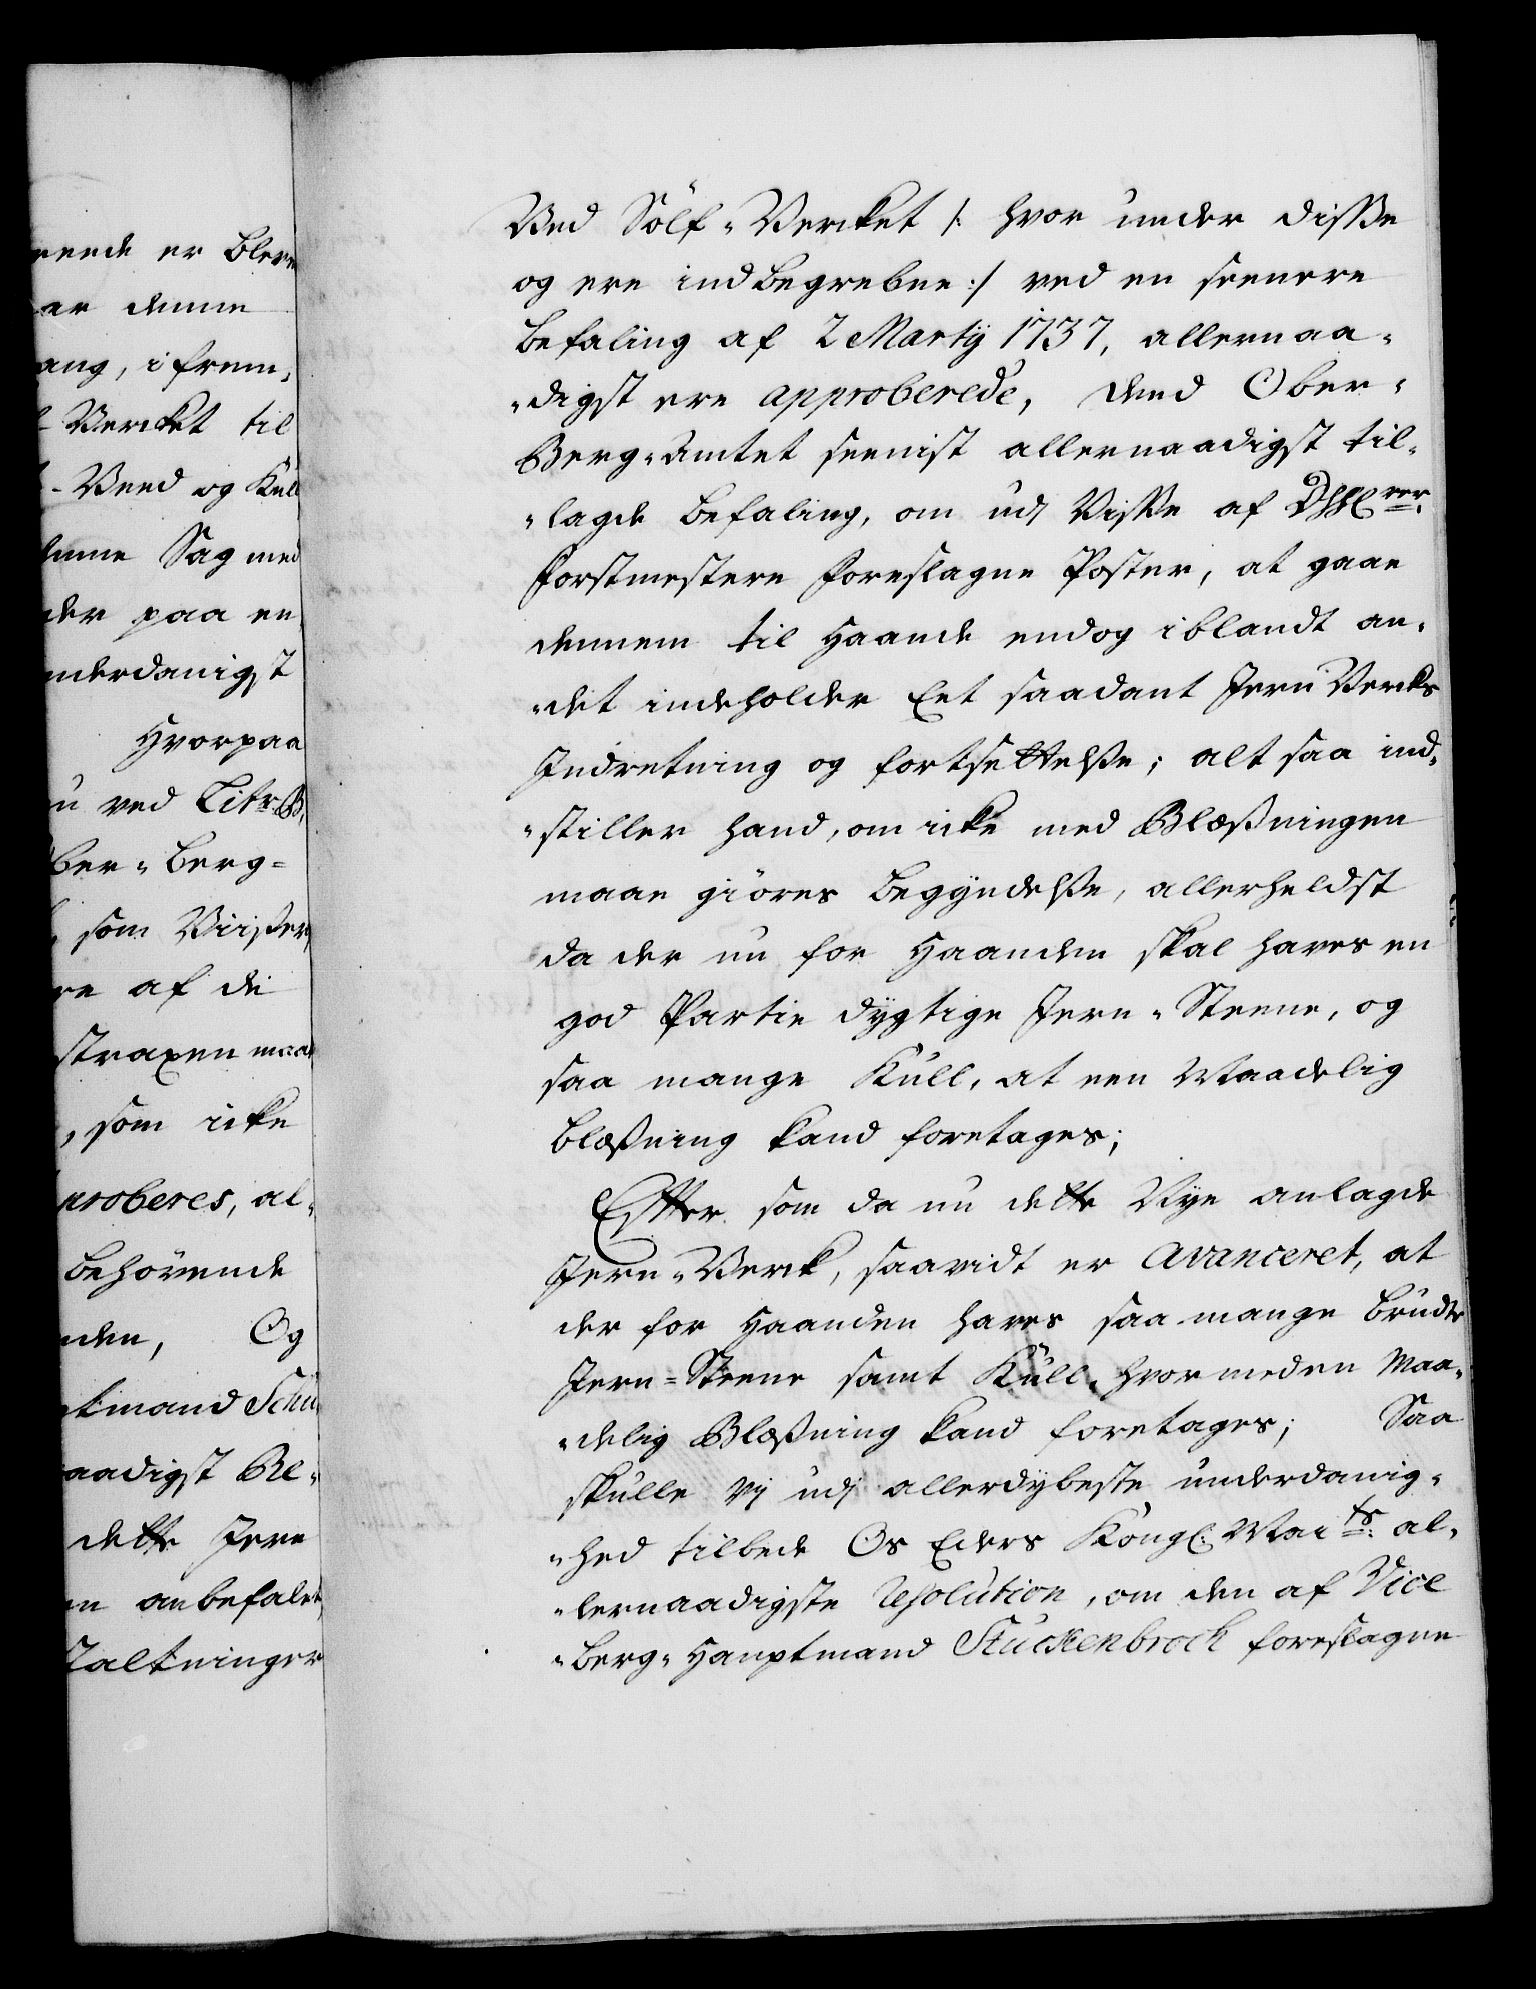 neede er bleve
ar denne
ang, i frem-
- Vercket til
- Veed og Kull
denne Sag med
der paa en
nderdanigst
Hvorpaa
u ved Litr. B,
ber- Berg-
, som Viiser,
re af di
straxen maa
, som icke
proberes, al-
behövende
nden, Og
tmand Schu
aadigst Be-
dette Jern
n anbefalet
staltninger
Ved Sölf-Vercket /: hvor under disse
og ere indbegrebne :/ ved en seenere
befaling af 2 Martij 1737, allernaa-
-digst ere approberede, Deend Ober-
Berg-Amtet seenist allernaadigst til-
-lagde befaling, om udj Visse af
Forstmestere foreslagne Poster, at gaae
dennem til Haande endog iblandt an-
-det indeholder Eet saadant Jern Vercks
Indretning og fortsettelse; alt saa ind-
-stiller hand, om icke med Blæsningen
maae giöres begyndelse, allerheldst
da der nu for Haanden skal haves en
god Partie dygtige Jern-Steene, og
saa mange Kull, at een Maadelig
blæsning kand foretages;
Efter som da nu dette Nye anlagde
Jern-Verck, saavidt er Avanceret, at
der for Haanden haves saa mange brudte
Jern-Steene samt Kull, hvormed en Maa-
-delig Blæsning kand foretages; Saa
skulle Vj udj allerdybeste underdanig-
-hed tilbede Os Eders Kongl: Maits. al-
-lernaadigste Resolution, om den af Vice
-Berg-Hauptmand Stuckenbrock foreslagne